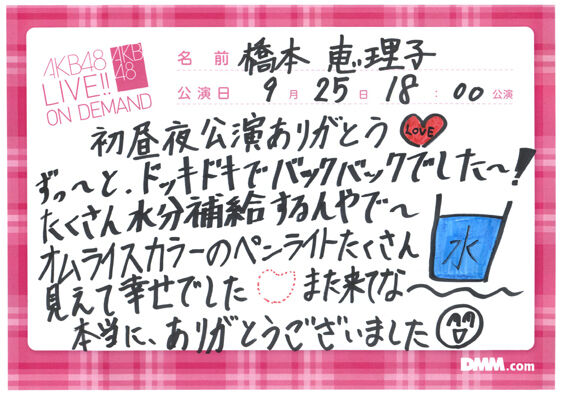 AKB48
LIVE!!
ON DEMAND
AKB
48
名前 橋本 恵理子
公演日 9月25日 18:00 公演
初昼夜公演ありがとう LOVE
ずっ〜と、ドッキドキでバックバックでした〜!
たくさん水分補給するんやで〜
水
オムライスカラーのペンライトたくさん
見えて幸せでした また来てな〜
本当に、ありがとうございました
DMM.com